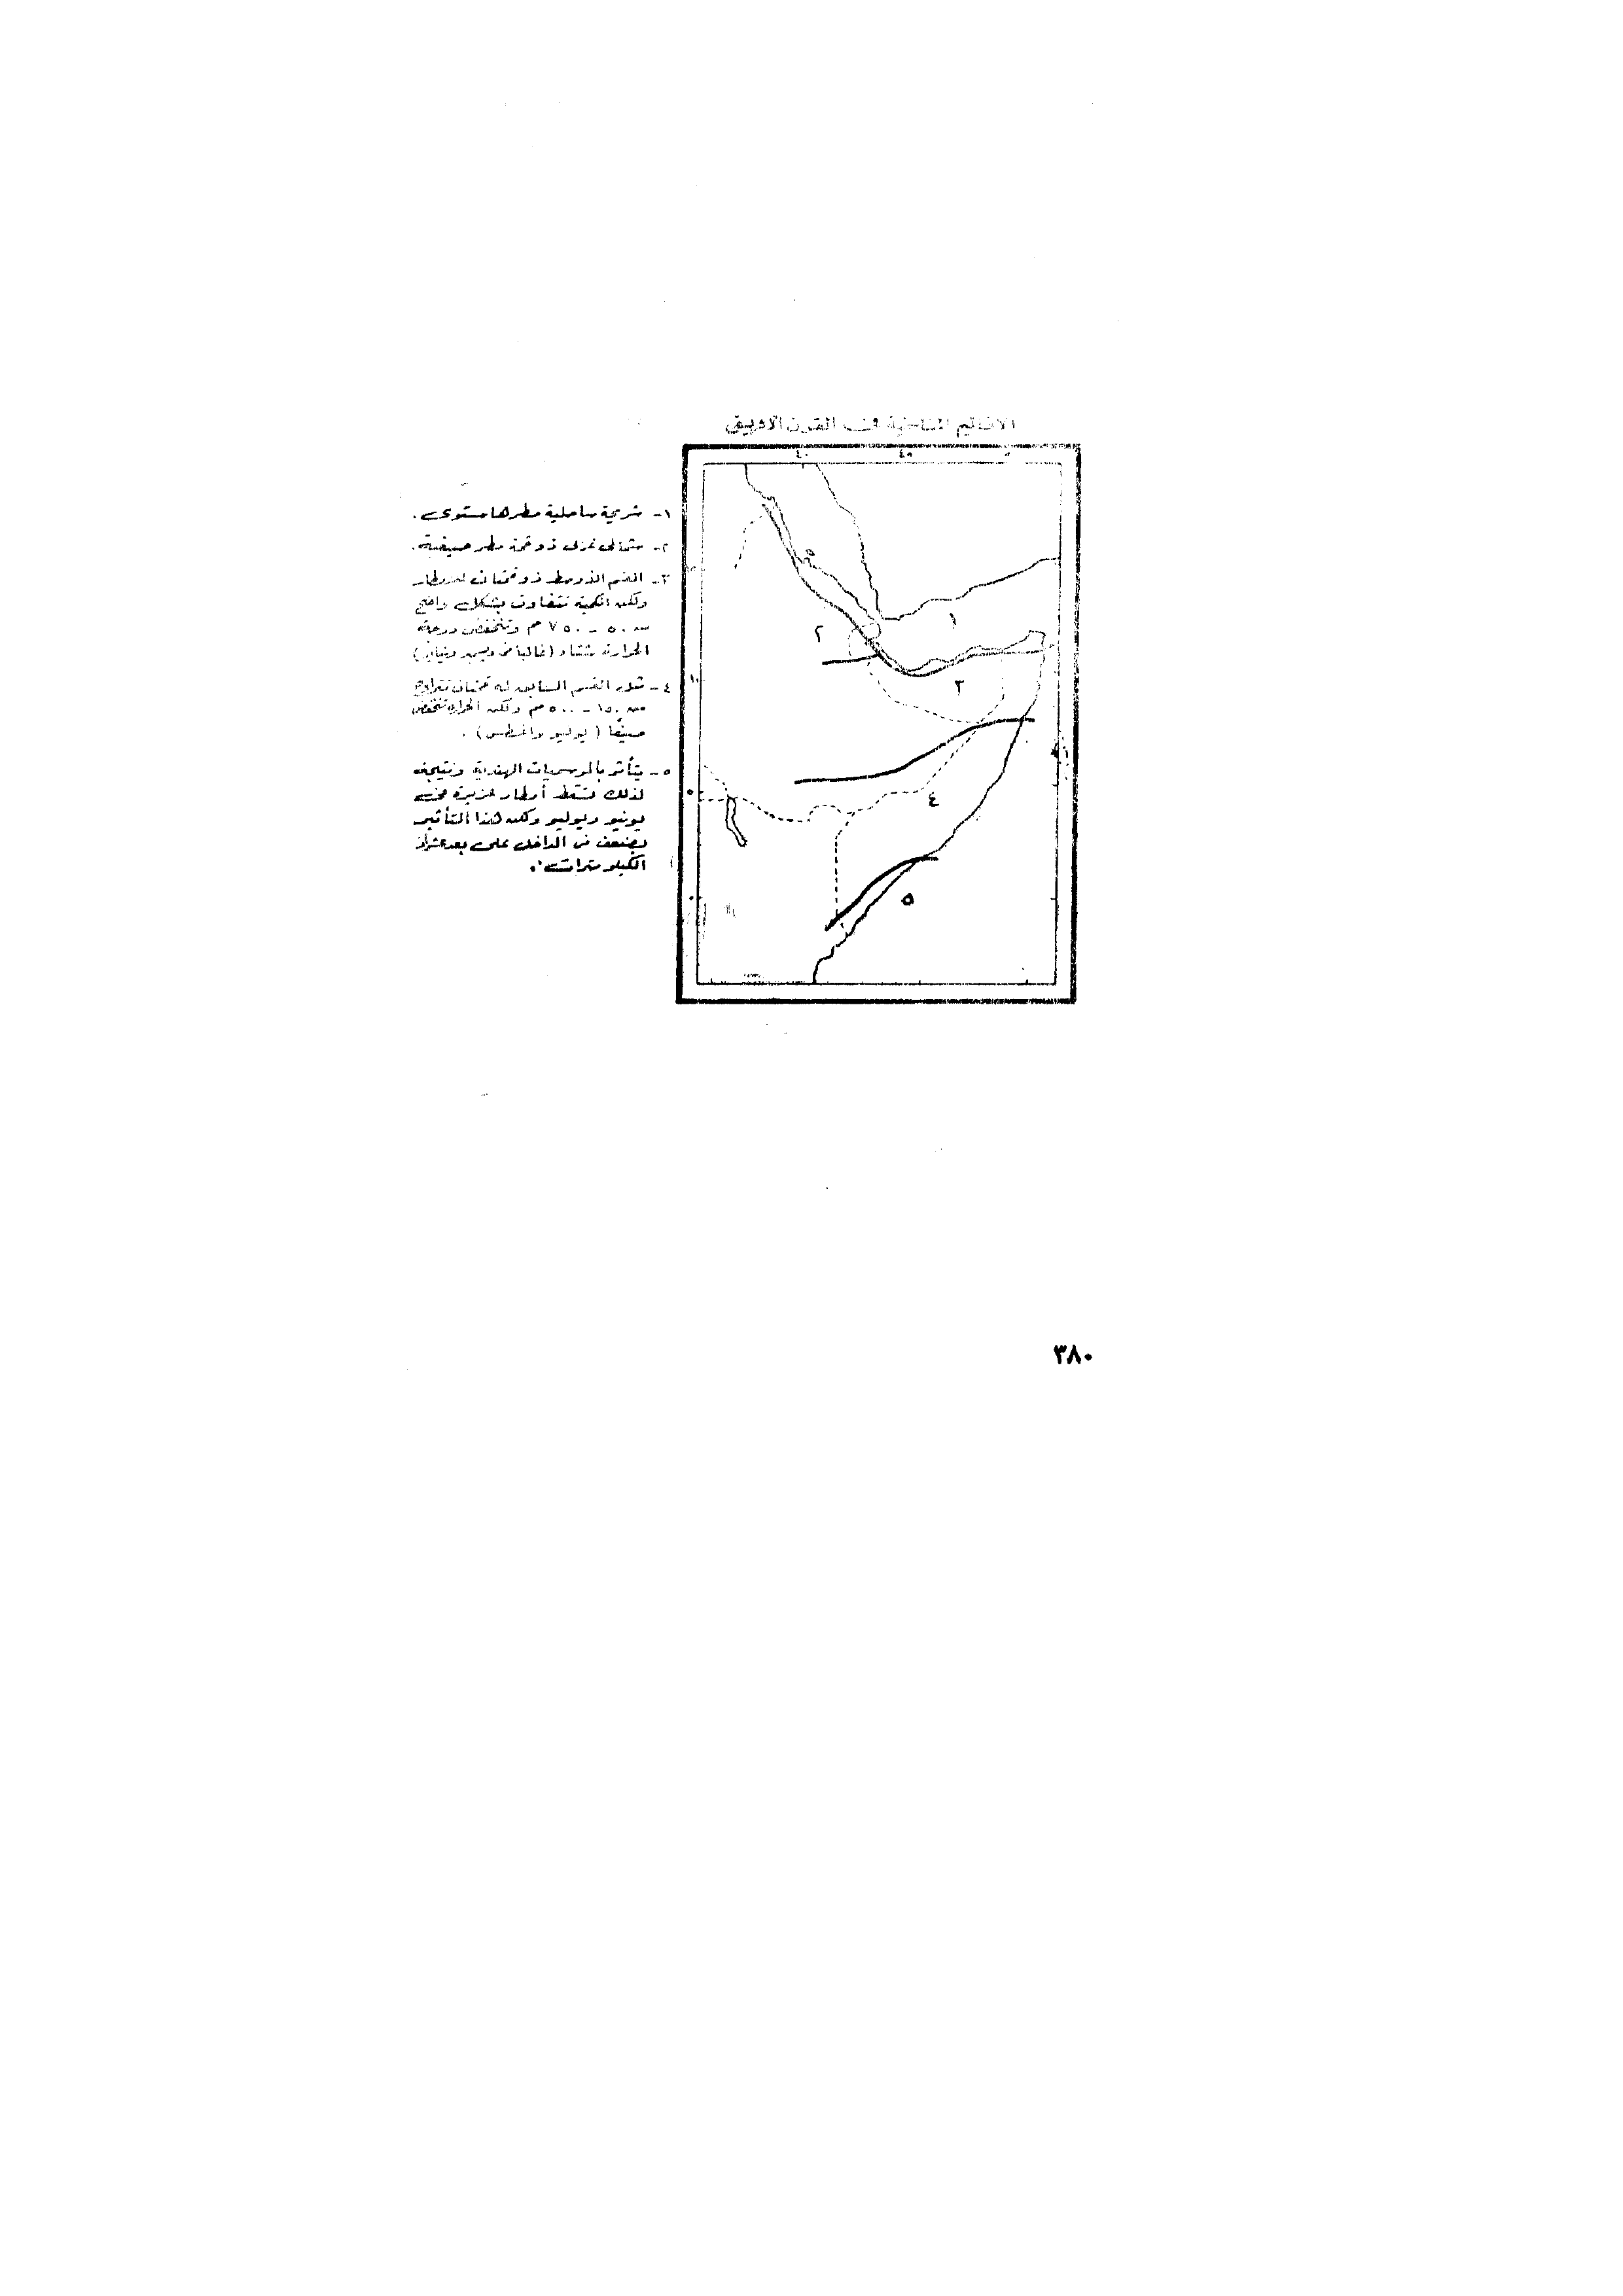 الاقاليم المناخية فى القرن الافريقى
٤٠ ٤٥ ٥٠
٥
١
٢
٣
١٠
٤
٥
٥
٠
١- شريحة ساحلية مطرها مستوى .
٢- شمالى غربى ذو قمة مطر صيفية.
٣- القسم الاوسط ذو قمتان للامطار
ولكن الكمية تتفاوت بشكل واضح
من ٥٠ - ٧٥٠ مم وتنخفض درجة
الحرارة شتاء (غالبا فى ديسمبر ويناير)
٤- مثل القسم السابق له قمتان تتراوح
من ١٥٠ - ٥٠٠ مم ولكن الحرارة تنخفض
صيفًا ( يوليو واغسطس ) .
٥- يتأثر بالموسميات الهندية ونتيجة
لذلك تسقط أمطار غزيرة فى
يونيو ويوليو ولكن هذا التأثير
يضعف فى الداخل على بعد عشرات
الكيلو مترات .
٣٨٠